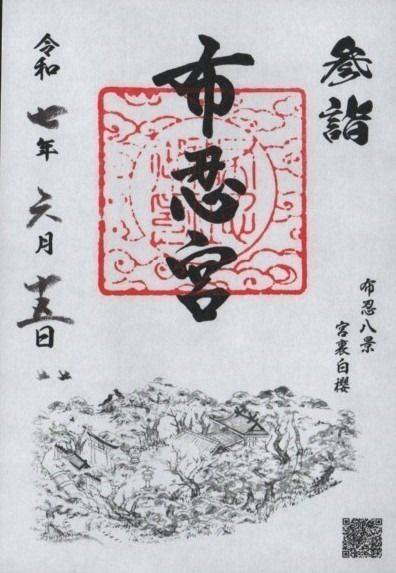 参詣
布忍宮
令和七年六月十五日
布忍八景
宮裏白櫻